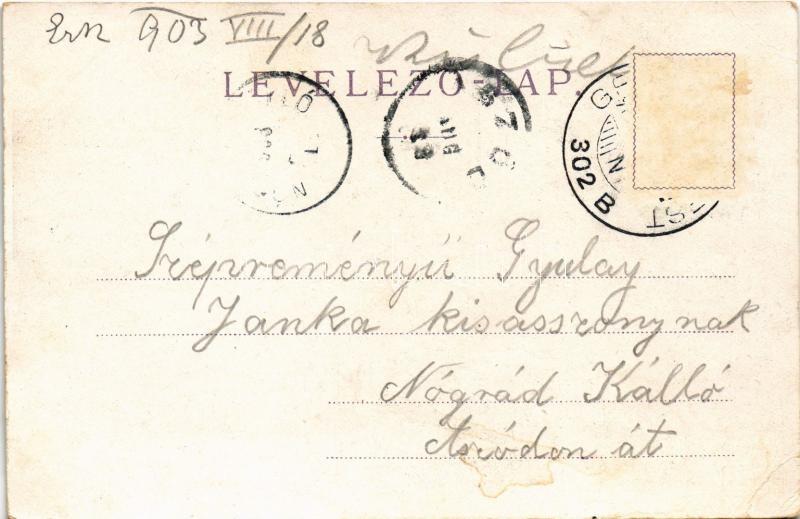 Erk 903 VIII/18
LEVELEZŐ-LAP.
302 B
Szépreményü Gyulay
Janka kisasszonynak
Nógrád Kálló
Aszódon át